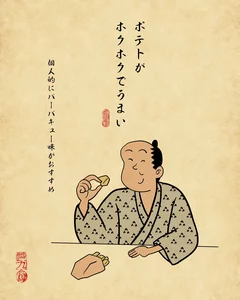 ポテトが
ホクホクでうまい
個人的にバーバキュー味がおすすめ